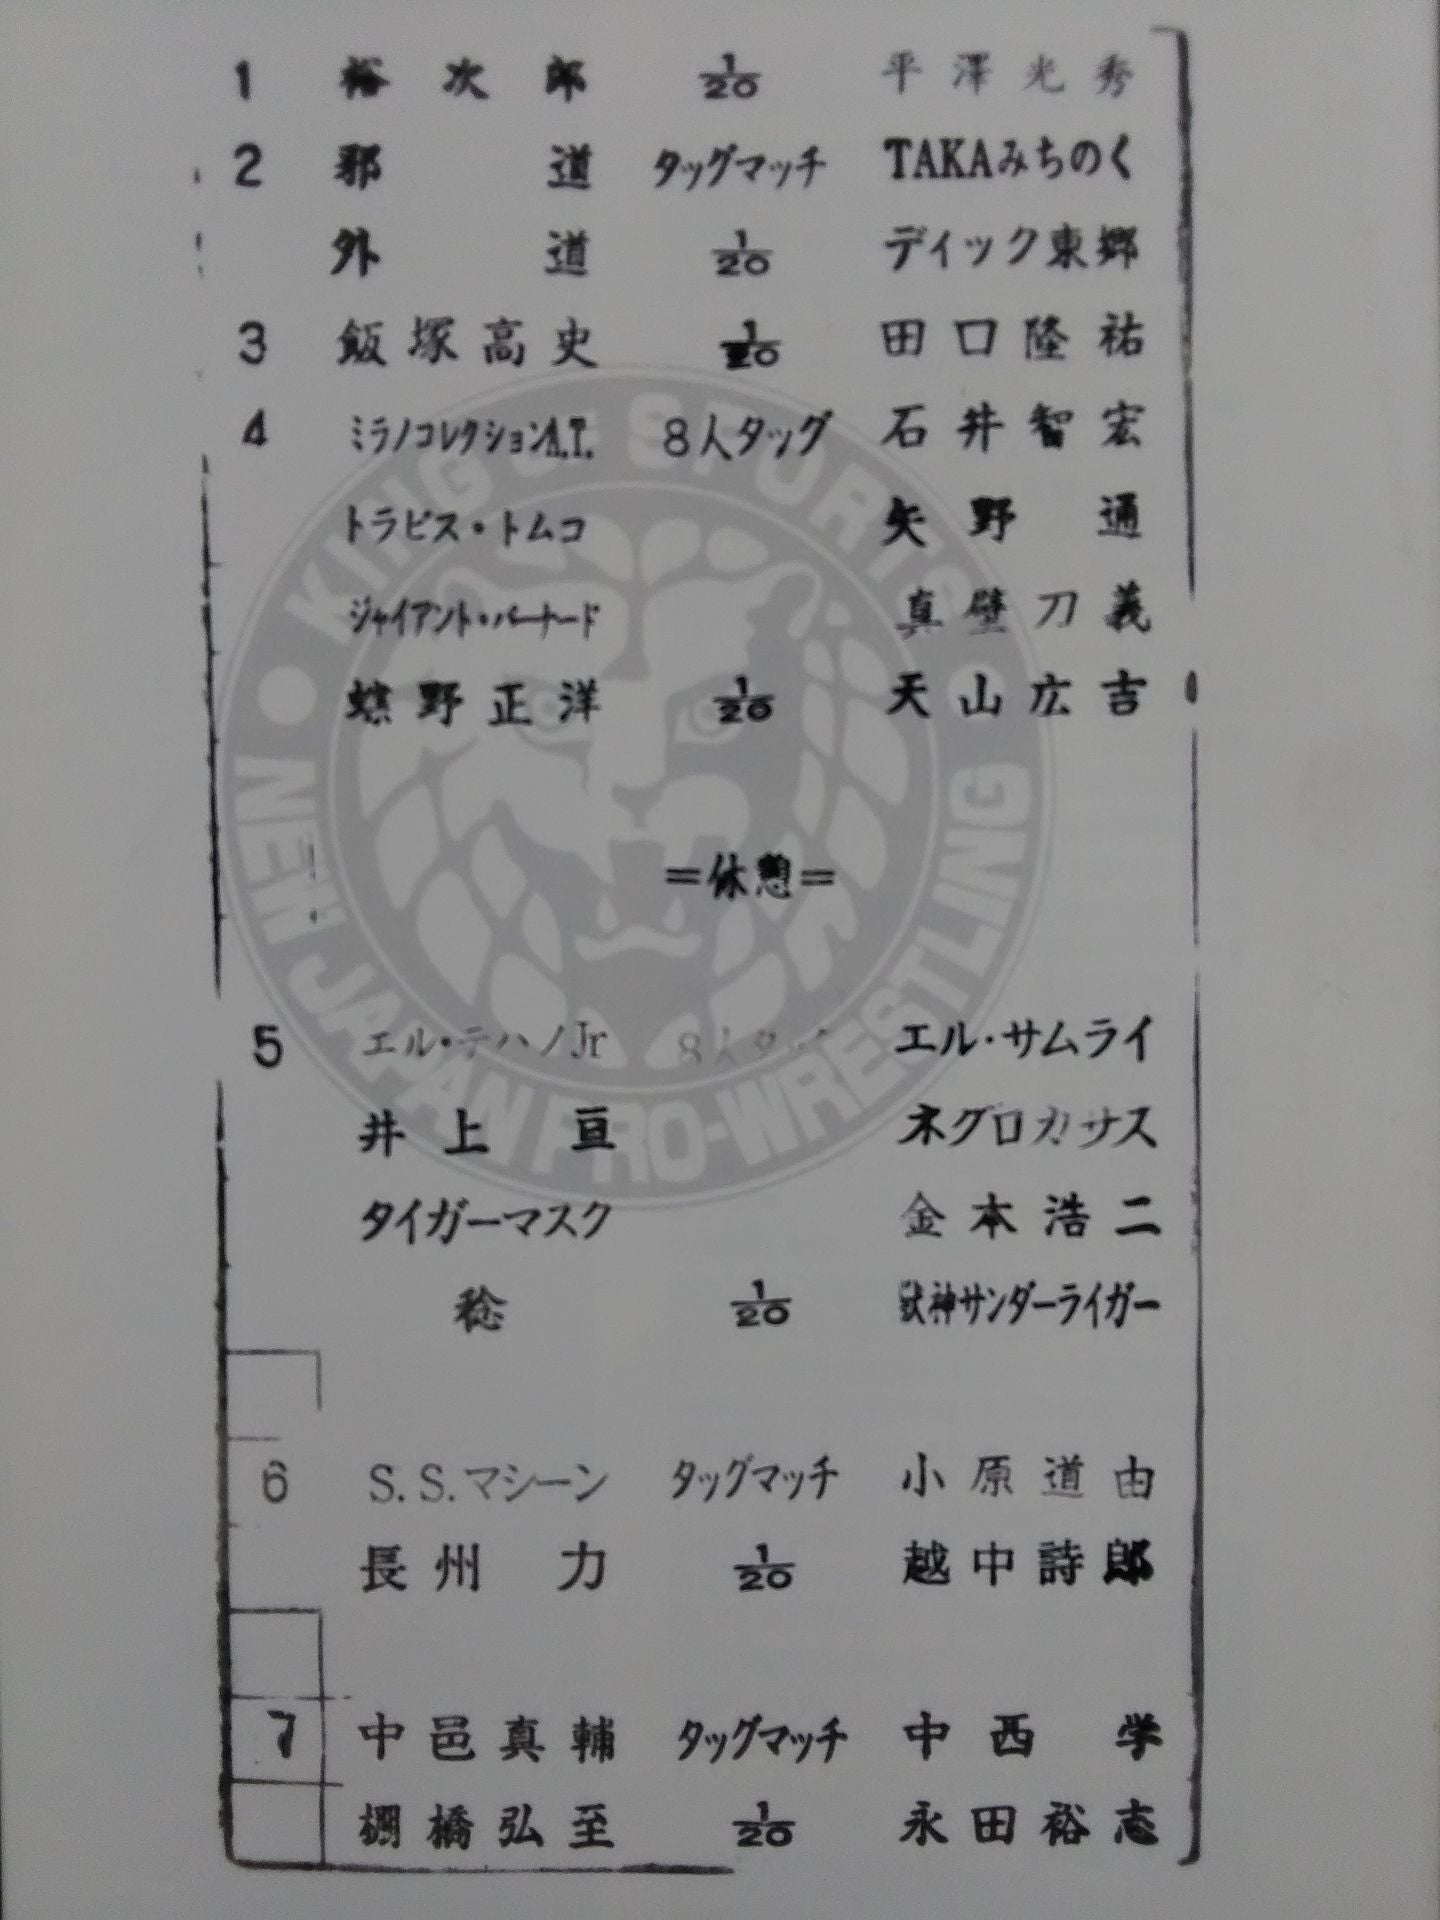 1 裕次郎 1/20 平澤光秀
2 邪道 タッグマッチ TAKAみちのく
外道 1/20 ディック東郷
3 飯塚高史 1/20 田口隆祐
4 ミラノコレクションA.T. 8人タッグ 石井智宏
トラビス・トムコ 矢野通
ジャイアント・バーナード 真壁刀義
蝶野正洋 1/20 天山広吉
=休憩=
5 エル・テハノJr 8人タッグ エル・サムライ
井上亘 ネグロカサス
タイガーマスク 金本浩二
稔 1/20 獣神サンダーライガー
6 S.S.マシーン タッグマッチ 小原道由
長州力 1/20 越中詩郎
7 中邑真輔 タッグマッチ 中西学
棚橋弘至 1/20 永田裕志
KING OF SPORTS
NEW JAPAN PRO-WRESTLING